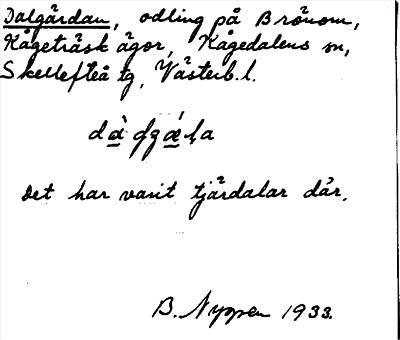 Dalgärdan, odling på Brånom,
Kågeträsk ägor, Kågedalens sn,
Skellefteå tg, Västerb. l.
Det har varit tjärdalar där.
B. Nyman 1933.